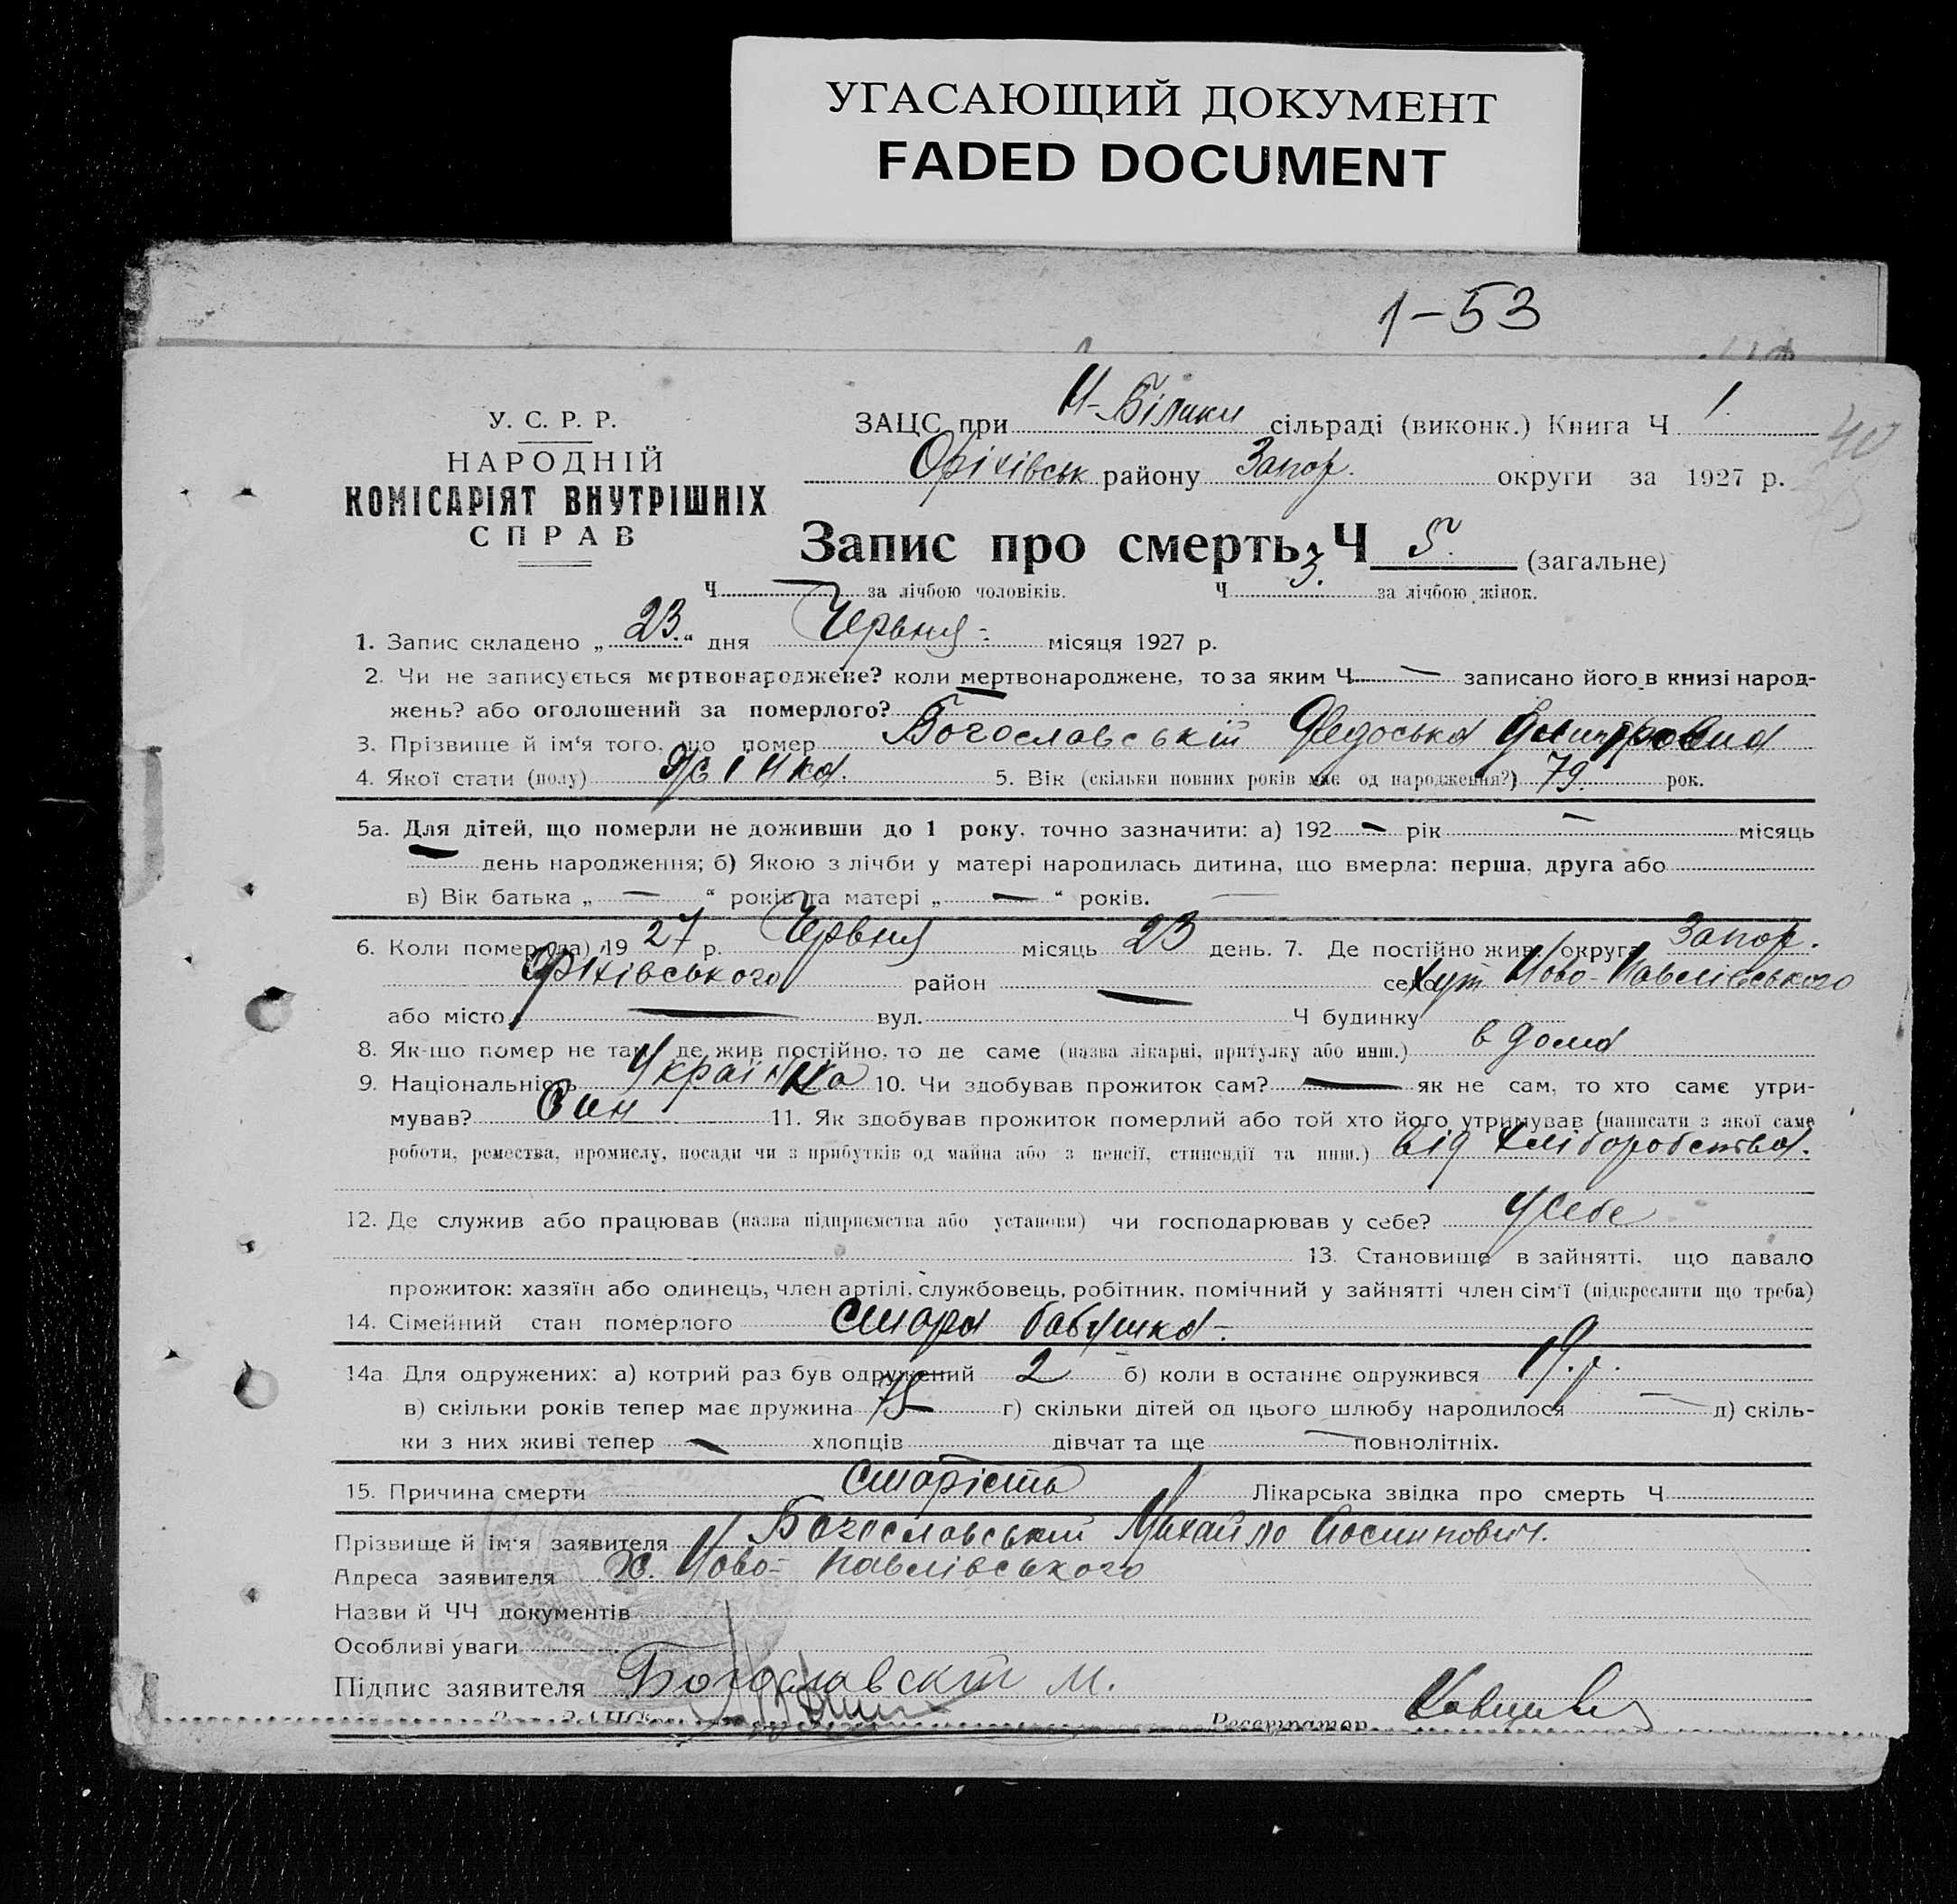 УГАСАЮЩИЙ ДОКУМЕНТ
FADED DOCUMENT
1-53
У. С. Р. Р.
НАРОДНІЙ
КОМІСАРІЯТ ВНУТРІШНІХ
СПРАВ
ЗАЦС при Н-Білики сільраді (виконк.) Книга Ч 1.
40
Оріхівськ району Запор. округи за 1927 р.
Запис про смерть Ч 5. (загальне)
Ч — за лічбою чоловіків. Ч 3. за лічбою жінок.
1. Запис складено „23.“ дня Червня - місяця 1927 р.
2. Чи не записується мертвонароджене? коли мертвонароджене, то за яким Ч — записано його в книзі народ-
жень? або оголошений за померлого? —
3. Прізвище й ім'я того, що помер Богославській Федоська Дмитровна
4. Якої стати (полу) жінка. 5. Вік (скільки повних років має од народження?) 79. рок.
5а. Для дітей, що померли не доживши до 1 року, точно зазначити: а) 192 — рік — місяць
— день народження; б) Якою з лічби у матері народилась дитина, що вмерла: перша, друга або
в) Вік батька „ — “ років та матері „ — “ років. —
6. Коли помер(ла) 1927 р. Червня місяць 23 день. 7. Де постійно жив: округа Запор.
Оріхівського район — село хут Ново-Павлівського
або місто — вул. Ч будинку
8. Як-що помер не там, де жив постійно, то де саме (назва лікарні, притулку або инш.) в дома
9. Національність Українка 10. Чи здобував прожиток сам? — як не сам, то хто саме утри-
мував? Син 11. Як здобував прожиток померлий або той хто його утримував (написати з якої саме
роботи, ремества, промислу, посади чи з прибутків од майна або з пенсії, стипендії та инш.) від хліборобства.
12. Де служив або працював (назва підприємства або установи) чи господарював у себе? у себе
13. Становище в зайнятті, що давало
прожиток: хазяїн або одинець, член артілі, службовець, робітник, помічний у зайнятті член сім'ї (підкреслити що треба)
14. Сімейний стан померлого стара бабушка -
14а Для одружених: а) котрий раз був одружений 2 б) коли в останнє одружився
в) скільки років тепер має дружина 75 г) скільки дітей од цього шлюбу народилося — д) скіль-
ки з них живі тепер — хлопців дівчат та ще — повнолітніх.
15. Причина смерти старість Лікарська звідка про смерть Ч
Прізвище й ім'я заявителя Богославський Михайло Йосипович.
Адреса заявителя х. Ново-Павлівського
Назви й ЧЧ документів
Особливі уваги
Підпис заявителя Богославскій М.
ЗАЦС Реєстратор